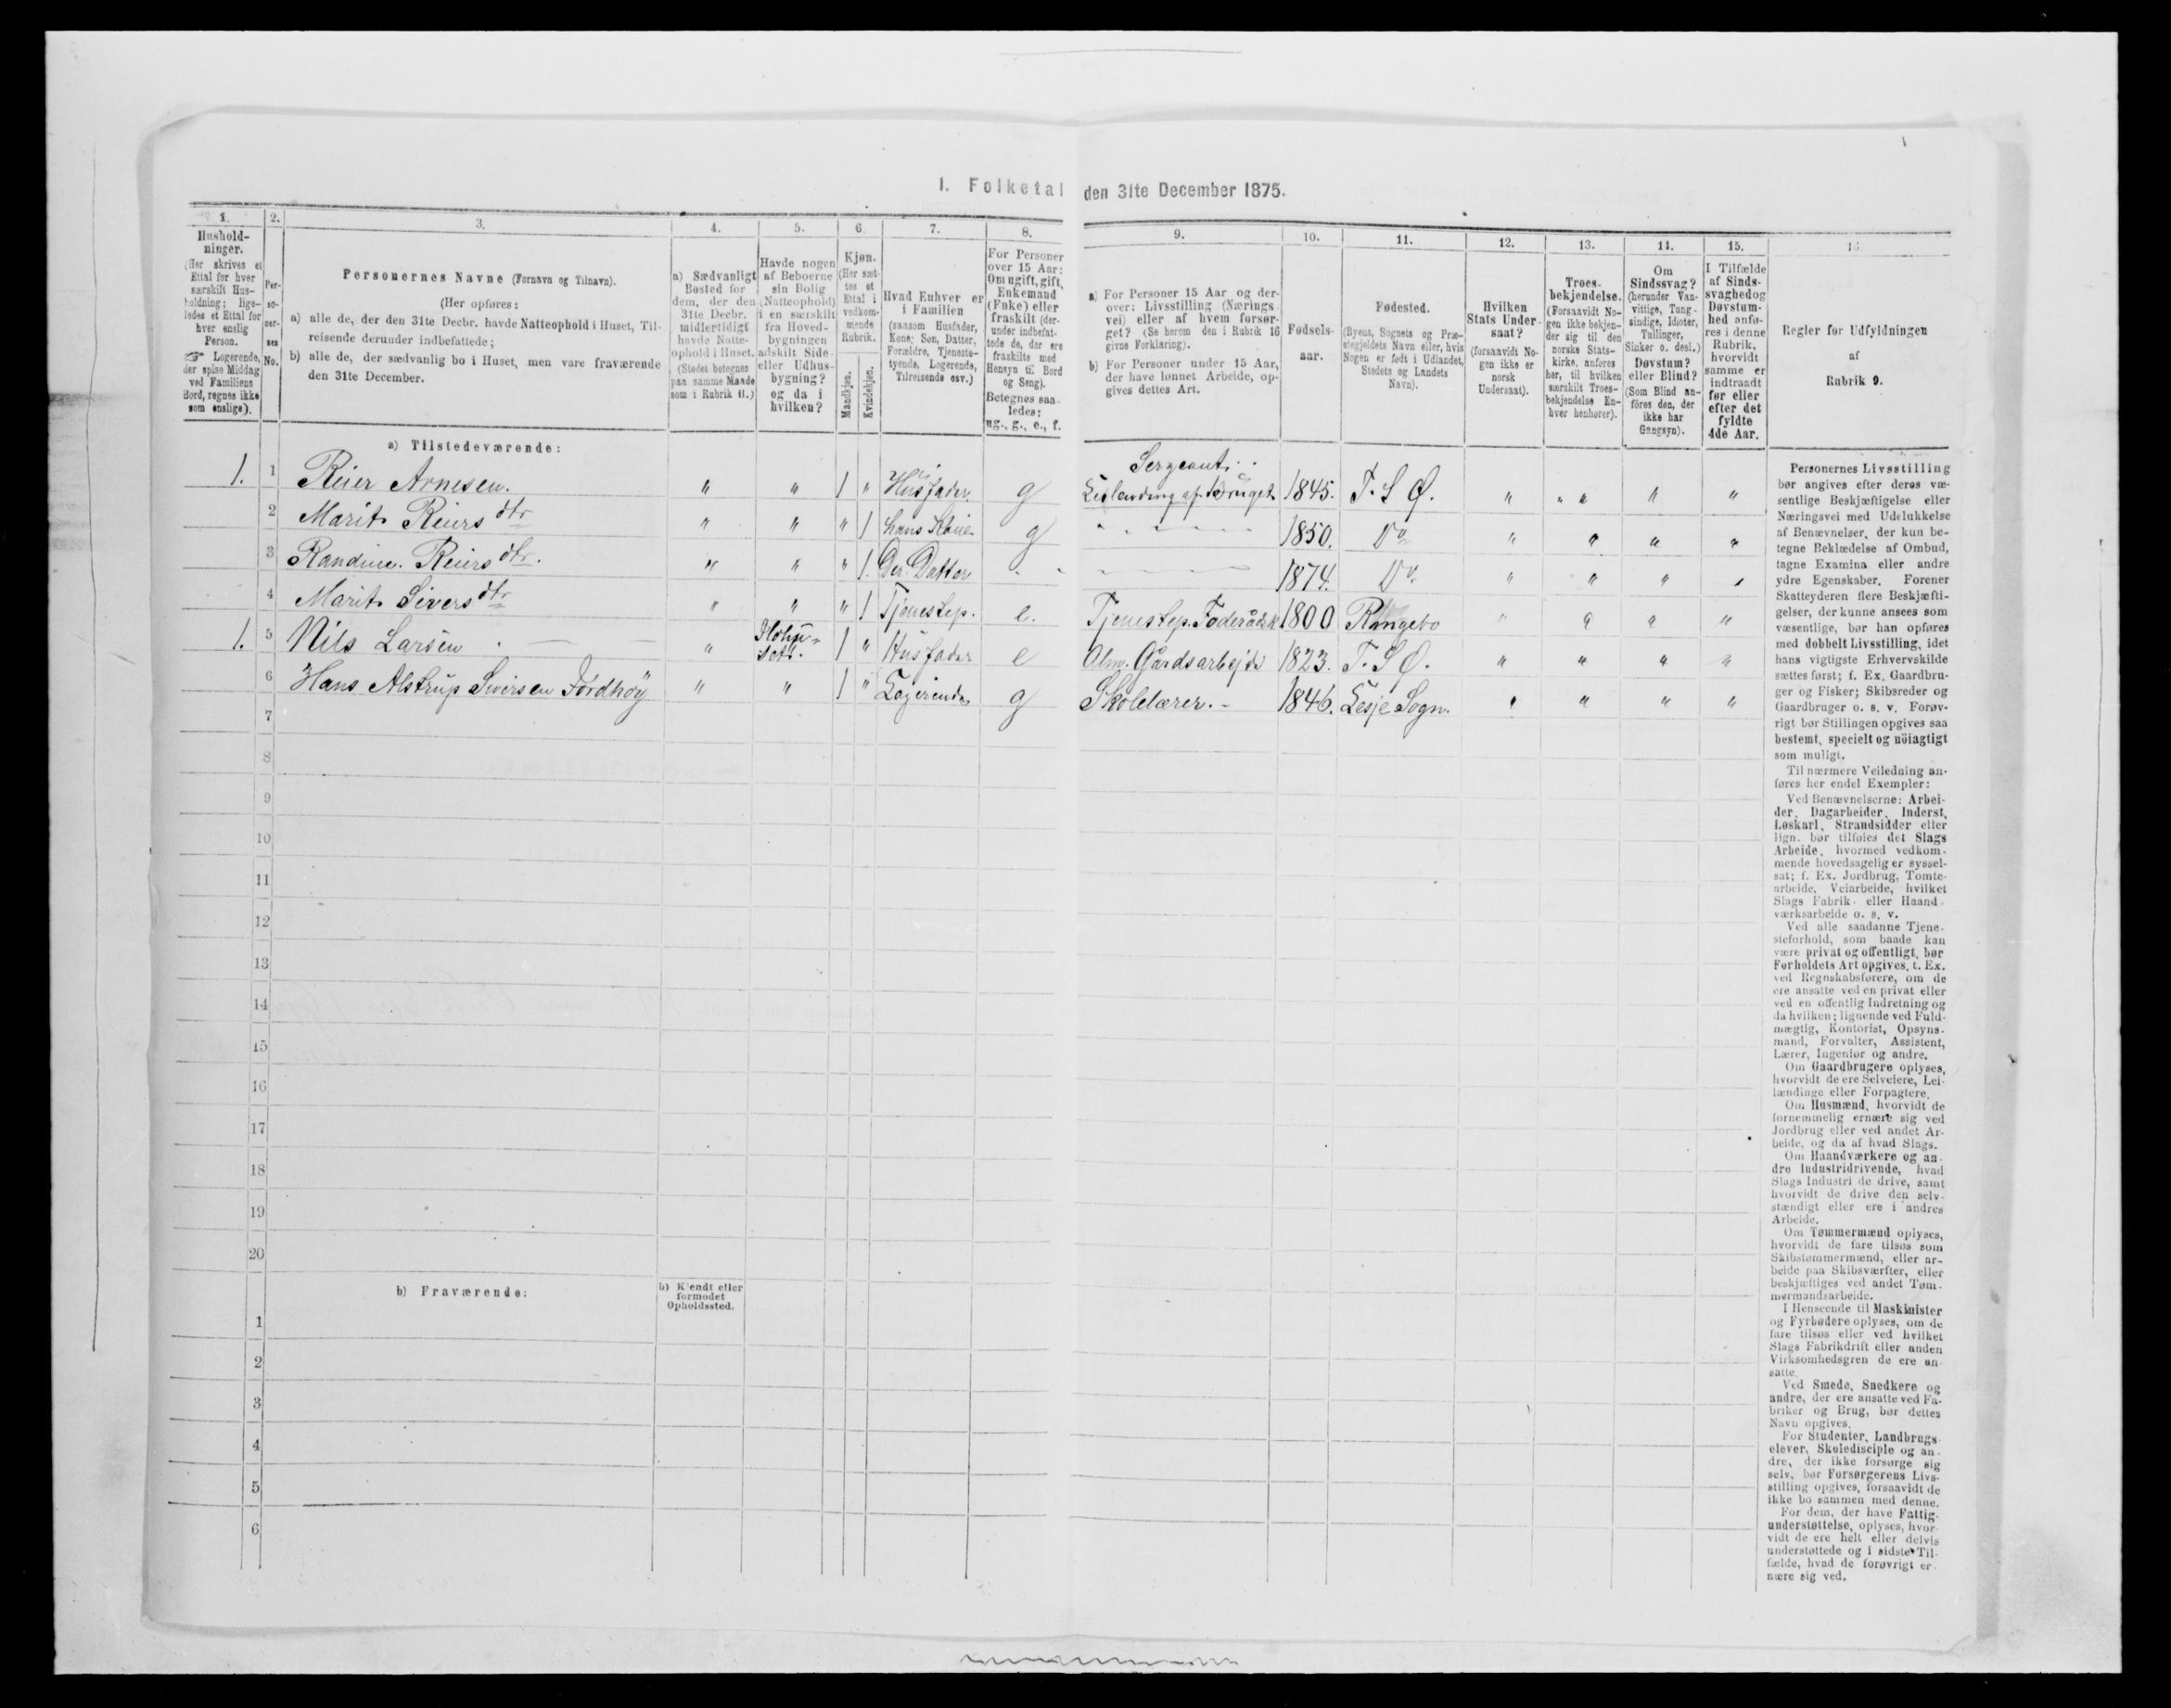 I. Folketal den 31te December 1875.
1. 2. 3. 4. 5. 6. 7. 8. 9. 10. 11. 12. 13. 14. 15. 16.
Hushold-
ninger.
(Her skrives et
Ettal for hver
særskilt Hus-
holdning; lige-
ledes et Ettal for
hver enslig
Person.
☞ Logerende,
der spise Middag
ved Familiens
Bord, regnes ikke
som enslige).
Per-
so-
ner-
nes
No.
Personernes Navne (Fornavn og Tilnavn).
(Her opføres:
a) alle de, der den 31te Decbr. havde Natteophold i Huset, Til-
reisende derunder indbefattede;
b) alle de, der sædvanlig bo i Huset, men vare fraværende
den 31te December.
a) Sædvanligt
Bosted for
dem, der den
31te Decbr.
midlertidigt
havde Natte-
ophold i Huset.
(Stedet betegnes
paa samme Maade
som i Rubrik 11.)
Havde nogen
af Beboerne
sin Bolig
(Natteophold)
i en særskilt
fra Hoved-
bygningen
adskilt Side-
eller Udhus-
bygning?
og da i
hvilken?
Kjøn.
(Her sæt-
tes et
Ettal i
vedkom-
mende
Rubrik.
Mandkjøn.
Kvindekjøn.
Hvad Enhver er
i Familien
(saasom Husfader,
Kone, Søn, Datter,
Forældre, Tjeneste-
tyende, Logerende,
Tilreisende osv.)
For Personer
over 15 Aar:
Om ugift, gift,
Enkemand
(Enke) eller
fraskilt (der-
under indbefat-
tede de, der ere
fraskilte med
Hensyn til Bord
og Seng).
Betegnes saa-
ledes:
ug., g., e., f.
a) For Personer 15 Aar og der-
over: Livsstilling (Nærings-
vei) eller af hvem forsør-
get? (Se herom den i Rubrik 16
givne Forklaring).
b) For Personer under 15 Aar,
der have lønnet Arbeide, op-
gives dettes Art.
Fødsels-
aar.
Fødested.
(Byens, Sognets og Præ-
stegjeldets Navn eller, hvis
Nogen er født i Udlandet,
Stedets og Landets
Navn).
Hvilken
Stats Under-
saat?
(forsaavidt No-
gen ikke er
norsk
Undersaat).
Troes-
bekjendelse.
(Forsaavidt No-
gen ikke bekjen-
der sig til den
norske Stats-
kirke, anføres
her, til hvilken
særskilt Troes-
bekjendelse En-
hver henhører).
Om
Sindssvag?
(herunder Van-
vittige, Tung-
sindige, Idioter,
Tullinger,
Sinker o. desl.)
Døvstum?
eller Blind?
(Som Blind an-
føres den, der
ikke har
Gangsyn).
I Tilfælde
af Sinds-
svaghed og
Døvstum-
hed anfø-
res i denne
Rubrik,
hvorvidt
samme er
indtraadt
før eller
efter det
fyldte
4de Aar.
Regler for Udfyldningen
af
Rubrik 9.
a) Tilstedeværende:
Sergeant
1. 1 Reier Arnesen. " " 1 " Husfader g Leilending af Bruget 1845. T. S Ø. " " " " "
2 Marit Reiers dtr " " " 1 hans Kone g " 1850. Do " " " "
3 Randine Reiers dtr. " " " 1. Der. Datter 1874. Do " " " "
4 Marit Sivers dtr " " " 1 Tjenestep. e. Tjenestep. 1800 Ringebo " " " "
1. 5 Nils Larsen " 1 " Husfader e Alm. Gårdsarbejde 1823. T. S Ø. " " " "
6 Hans Alstrup Siversen Fördhöy " " 1 " Logerende g Skolelærer. 1846. Lesje Sogn. " " " "
7
8
9
10
11
12
13
14
15
16
17
18
19
20
b) Fraværende:
b) Kjendt eller
formodet
Opholdssted.
1
2
3
4
5
6
Personernes Livsstilling
bør angives efter deres væ-
sentlige Beskjæftigelse eller
Næringsvei med Udelukkelse
af Benævnelser, der kun be-
tegne Beklædelse af Ombud,
tagne Examina eller andre
ydre Egenskaber. Forener
Skatteyderen flere Beskjæfti-
gelser, der kunne ansees som
væsentlige, bør han opføres
med dobbelt Livsstilling, idet
hans vigtigste Erhvervskilde
sættes først; f. Ex. Gaardbru-
ger og Fisker; Skibsreder og
Gaardbruger o. s. v. Forøv-
rigt bør Stillingen opgives saa
bestemt, specielt og nöiagtigt
som muligt.
Til nærmere Veiledning an-
føres her endel Exempler:
Ved Benævnelserne: Arbei-
der, Dagarbeider, Inderst,
Løskarl, Strandsidder eller
lign. bør tilføies det Slags
Arbeide, hvormed vedkom-
mende hovedsagelig er syssel-
sat; f. Ex. Jordbrug, Tomte-
arbeide, Veiarbeide, hvilket
Slags Fabrik- eller Haand-
værksarbeide o. s. v.
Ved alle saadanne Tjene-
steforhold, som baade kan
være privat og offentligt, bør
Forholdets Art opgives, t. Ex.
ved Regnskabsførere, om de
ere ansatte ved en privat eller
ved en offentlig Indretning og
da hvilken; lignende ved Fuld-
mægtig, Kontorist, Opsyns-
mand, Forvalter, Assistent,
Lærer, Ingeniør og andre.
Om Gaardbrugere oplyses,
hvorvidt de ere Selveiere, Lei-
lændinge eller Forpagtere.
Om Husmænd, hvorvidt de
fornemmelig ernære sig ved
Jordbrug eller ved andet Ar-
beide, og da af hvad Slags.
Om Haandværkere og an-
dre Industridrivende, hvad
Slags Industri de drive, samt
hvorvidt de drive den selv-
stændigt eller ere i andres
Arbeide.
Om Tømmermænd oplyses,
hvorvidt de fare tilsøs som
Skibstømmermænd, eller ar-
beide paa Skibsværfter, eller
beskjæftiges ved andet Tøm-
mermandsarbeide.
I Henseende til Maskinister
og Fyrbødere oplyses, om de
fare tilsøs eller ved hvilket
Slags Fabrikdrift eller anden
Virksomhedsgren de ere an-
satte.
Ved Smede, Snedkere og
andre, der ere ansatte ved Fa-
briker og Brug, bør dettes
Navn opgives.
For Studenter, Landbrugs-
elever, Skoledisciple og an-
dre, der ikke forsørge sig
selv, bør Forsørgerens Livs-
stilling opgives, forsaavidt de
ikke bo sammen med denne.
For dem, der have Fattig-
understøttelse, oplyses, hvor-
vidt de ere helt eller delvis
understøttede og i sidste Til-
fælde, hvad de forøvrigt er-
nære sig ved.